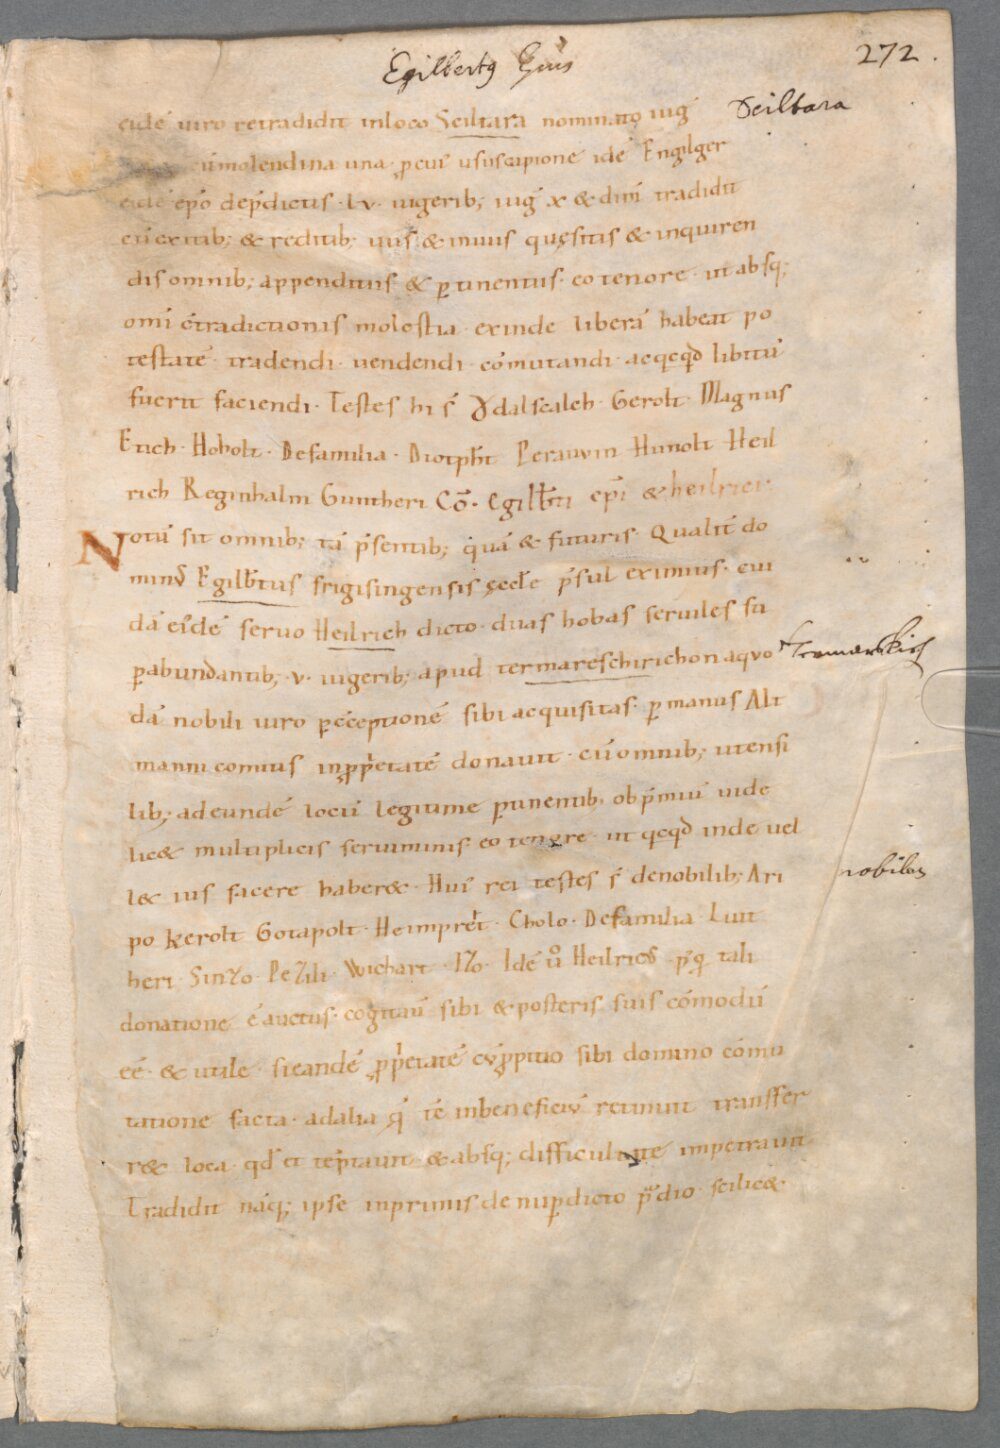 Egilbertꝰ Epus
272.
eidē uiro retradidit inloco Sciltara nominato iug̅
Sciltara
cūmolendina una ꝓcui ususcipione idē Engilger
eidē epō dep̄dictis · lv · iugerib; iug̅ x & dim̅ tradidit
cū exitib; & reditib; uiis & inuiis quęsitis & inquiren
dis omnib; appenditiis & ꝑtinentiis · eo tenore · ut absq;
omī c̄tradictionis molestia · exinde liberā habeat po
testatē · tradendi · uendendi · cōmutandi · acqcqd̄ libitū
fuerit faciendi · Testes hi s̄ Ǒdalscalch · Gerolt · Magnus
Etich · Hoholt · Defamilia · Diotpħt Perauvin Hunolt Heil
rich Reginhalm Guntheri Cō · Egilb̄ti epī & heilrici ·
Notū sit omnib; tā p̄sentib; quā & futuris · Qualit̄ do
minꝰ Egilb̄tus frigisingensis ęccłe p̄sul eximius · cui
dā eidē seruo Heilrich dicto · duas hobas seruiles su
ꝑabundantib; · v · iugerib; apud termareschirichon aquo
Termarskirch
dā nobili uiro ꝑc̄ceptionē sibi acquisitas · ꝑ manus Alt
manni comitis inꝓp̄etatē donauit · cū omnib; utensi
lib; adeundē locū legitime ꝑtinentib; ob p̄miū uide
lic& multiplicis seruiminis eo tenore · ut qcqd̄ inde uel
l& ius facere haber& · Hui᷒ rei testes s̄ denobilib; Ari
nobiles
po Kerolt Gotapolt · Heimpret̄ · Cholo · Defamilia Liut
heri · Sinzo · Pezili · Wichart · Izo · Idē ů Heilrich · p̄q tali
donatione ē auctus · cogitaū sibi & posteris suis cōmodū
eē · & utile · sieandē ꝓp̄etatē cū ꝓpitio sibi domino cōmu
tatione facta · adalia q̄ tē inbeneficiū retinuit transfer
r& loca · qd̄ et tēp̄tauit · & absq; difficultate impetrauit ·
Tradidit nāq; ipse inprimis denuꝑdicto p̄dio · scilic& ·